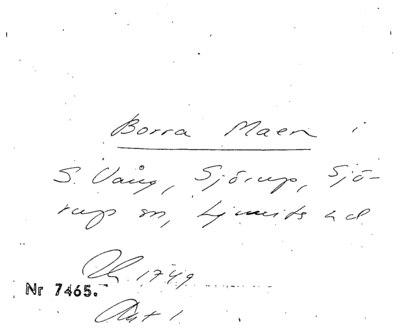 Borra Maen i
S. Vång, Sjörup, Sjö-
rup sn, Ljunits hd
1749
Nr 7465.
Akt 1.